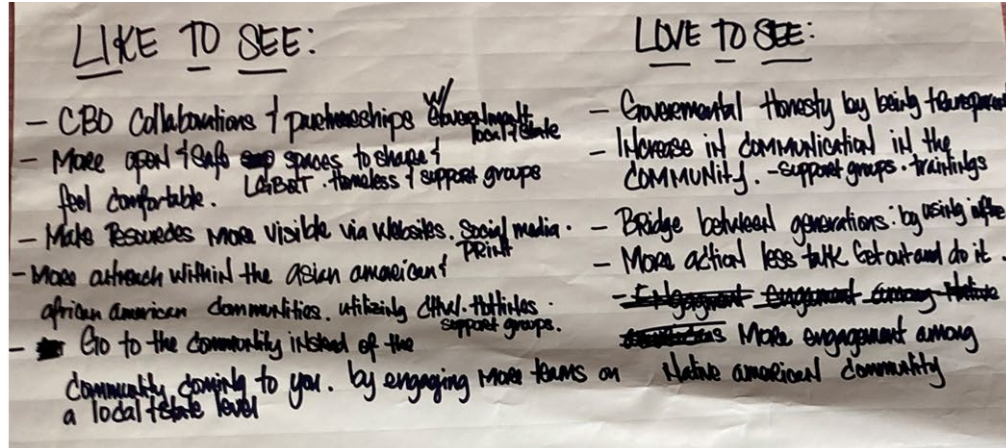 LIKE TO SEE:
- CBO Collaborations & partnerships w/ Government
local & state
- More open & safe spaces to share &
feel comfortable. LGBQT. Homeless & support groups
- Make Resources More visible via websites. Social media.
PRINT
- More outreach within the asian american &
african american communities. utilizing Hotlines.
support groups.
- Go to the community instead of the
community coming to you. by engaging More teams on
a local & state level
LOVE TO SEE:
- Governmental Honesty by being transparent
- INCREASE IN COMMUNICATION IN the
COMMUNITY. - support groups. trainings
- Bridge between generations: by using
- More action less talk Get out and do it.
More engagement among
Native american Community